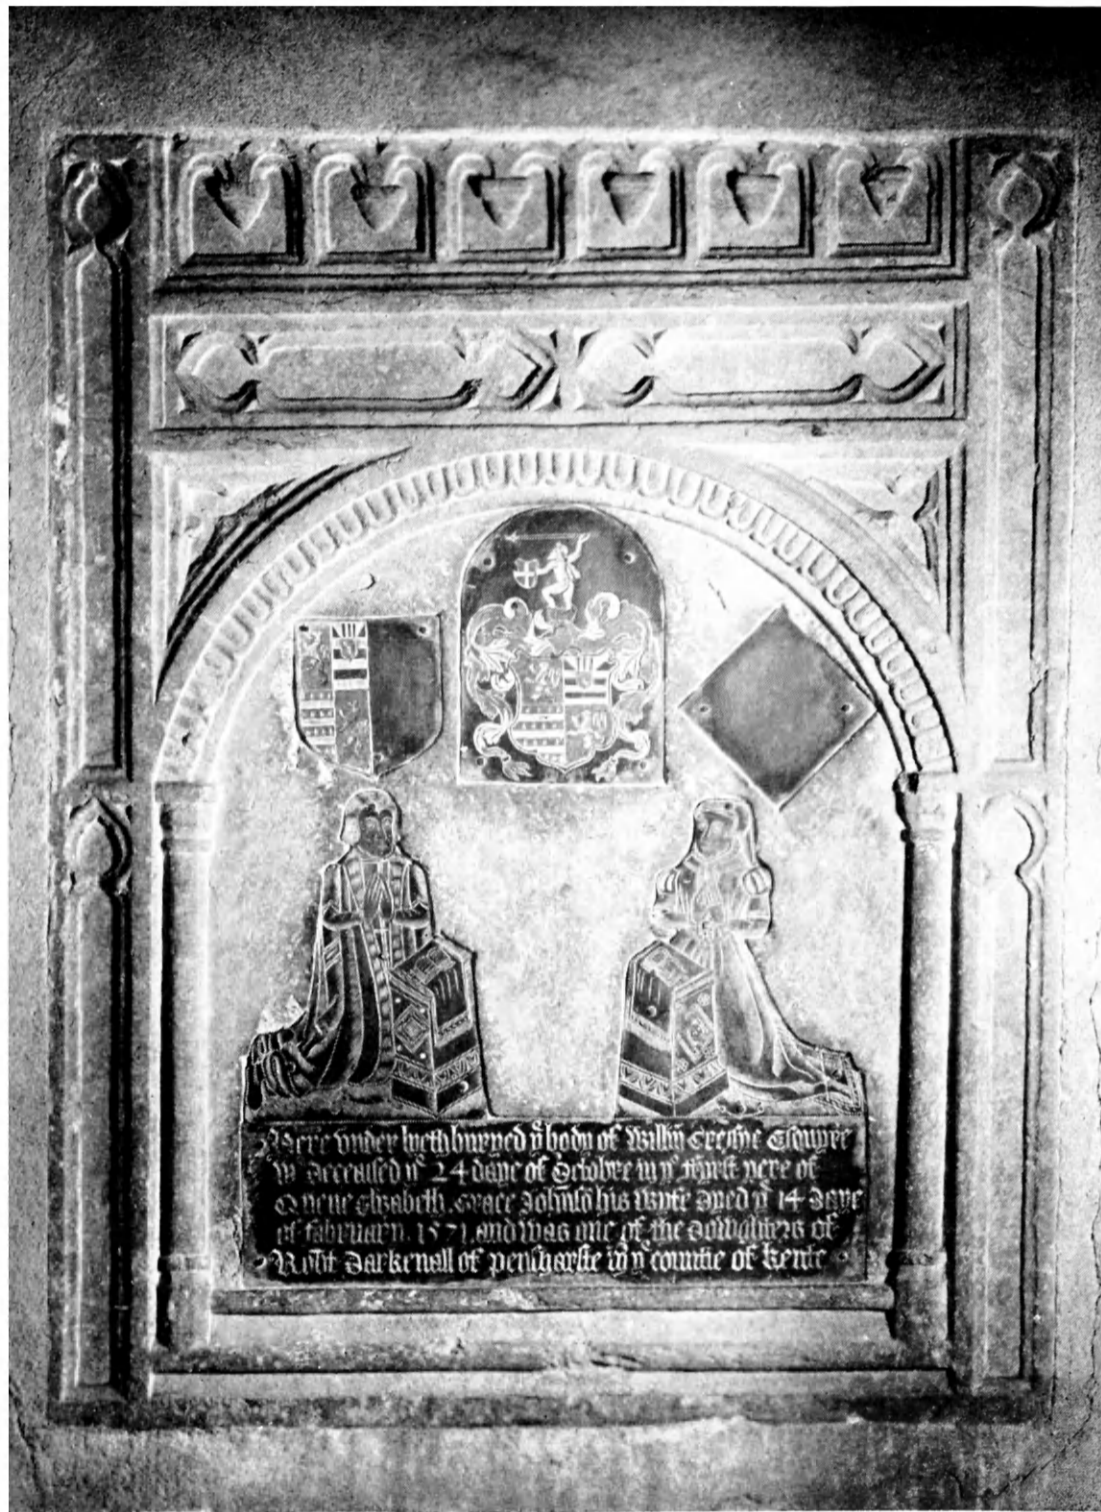 Here under lyeth buryed yͤ body of Willm Esquyre
wͨ deceased yͤ 24 daye of Octobre in yͤ fyrst yere of
Quene Elizabeth. Grace Johnsō his wyfe dyed yͤ 14 daye
of february. 1571. and was one of the dowghters of
Robt Darkenall of pensharste in yͤ countie of Kente